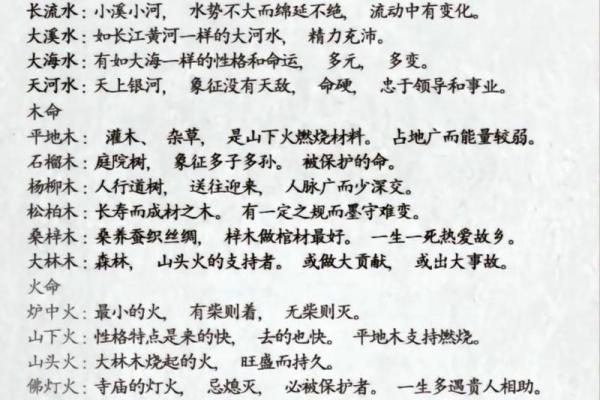 长流水：小溪小河， 水势不大而绵延不绝， 流动中有变化。
大溪水：如长江黄河一样的大河水， 精力充沛。
大海水：有如大海一样的性格和命运， 多元， 多变。
天河水：天上银河， 象征没有天敌， 命硬， 忠于领导和事业。
木命
平地木： 灌木、 杂草， 是山下火燃烧材料。 占地广而能量较弱。
石榴木：庭院树， 象征多子多孙。 被保护的命。
杨柳木：人行道树， 送往迎来， 人脉广而少深交。
松柏木：长寿而成材之木。 有一定之规而墨守难变。
桑梓木：桑养蚕织丝绸， 梓木做棺材最好。 一生一死热爱故乡。
大林木：森林， 山头火的支持者。 或做大贡献， 或出大事故。
火命
炉中火：最小的火， 有柴则着， 无柴则灭。
山下火：性格特点是来的快， 去的也快。 平地木支持燃烧。
山头火：大林木烧起的火， 旺盛而持久。
佛灯火：寺庙的灯火， 忌熄灭， 必被保护者。 一生多遇贵人相助。